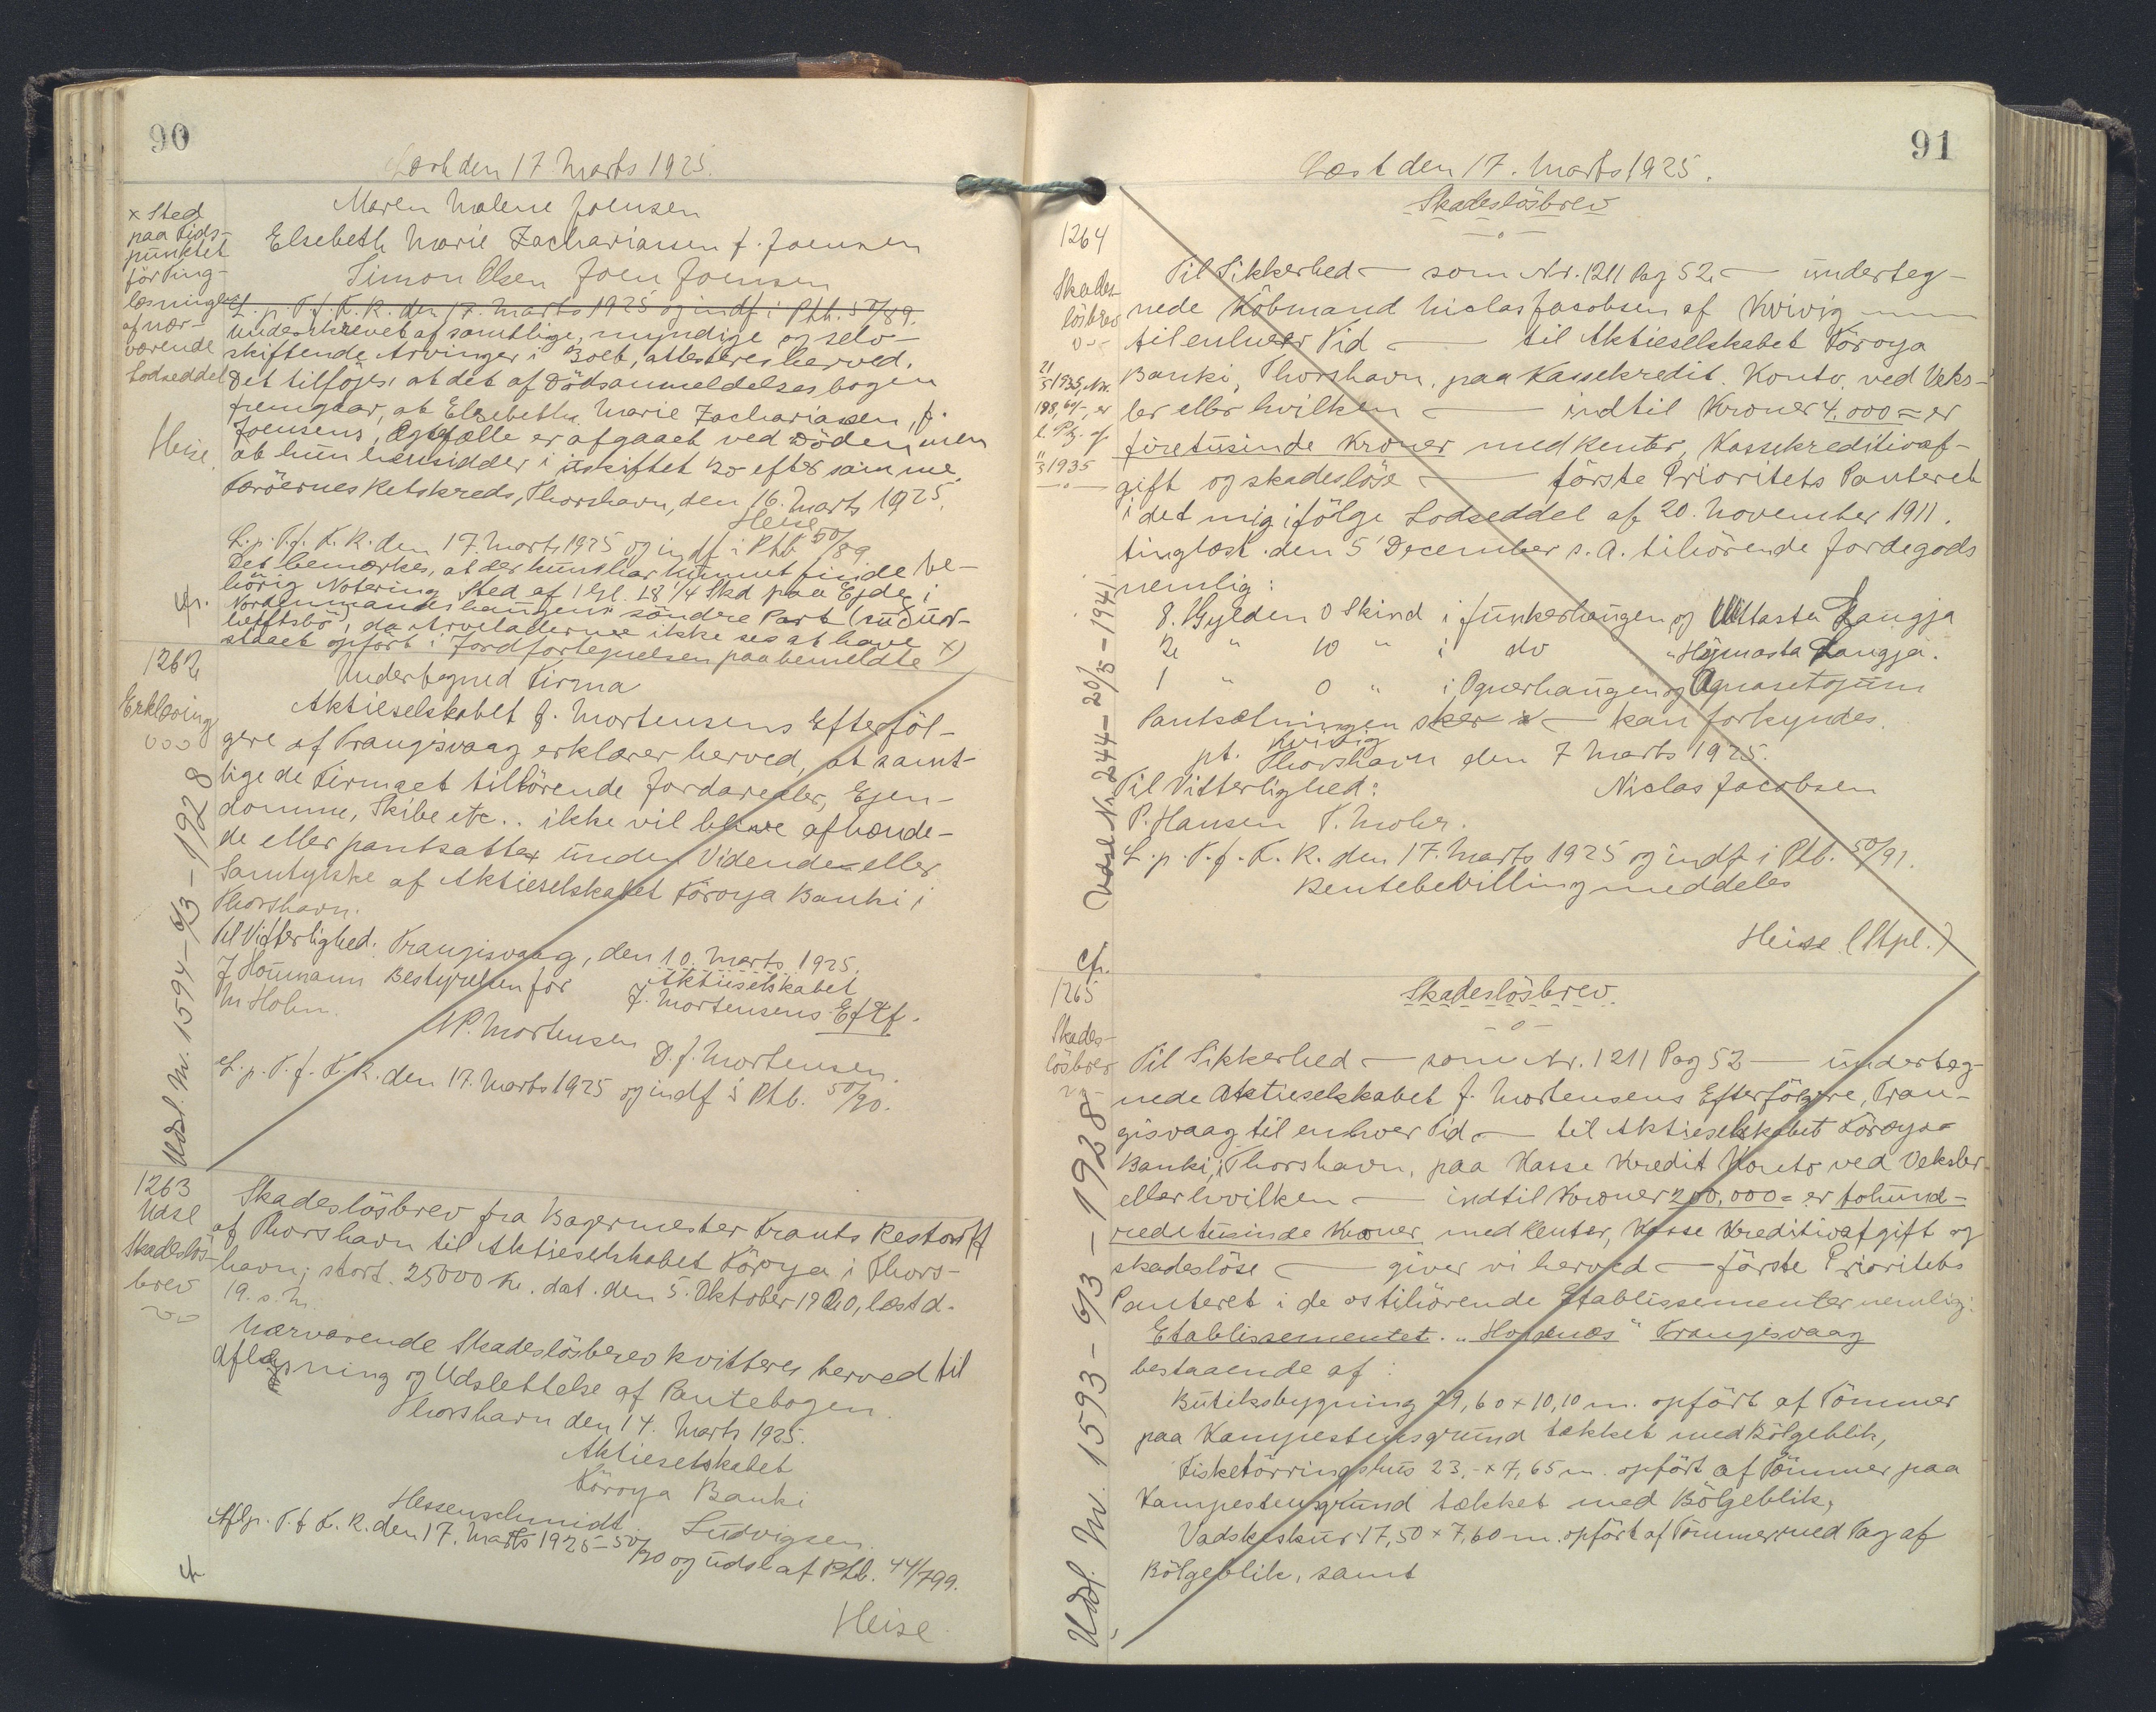 90
Læst den 17 Marts 1925.
Maren Malene Joensen
Elsebeth Marie Zachariasen f. Joensen
Simon Olsen Joen Joensen
L. p. T. f. F. R. den 17. Marts 1925 og indf i Ptb. 50/89.
underskrevet af samtlige, myndige og selv-
skiftende Arvinger i Boet, attesteres herved.
Det tilföjes, at det af Dödsanmeldelsesbogen
fremgaar, at Elsebeth Marie Zachariasen, f.
Joensens, Ægtefælle er afgaaet ved Döden, men
at hun hensidder i uskiftet Bo efter samme.
Færöernes Retskreds, Thorshavn, den 16. Marts 1925.
Heise
L. p. T. f. F. R. den 17. Marts 1925 og indf i Ptb 50/89
Det bemærkes, at der kun har kunnet finde be-
hörig Notering Sted af 1 Gl. 18 1/4 Skd paa Ejde i
Nordenmandshaugens söndre Part
da Arveladerne ikke ses at have
staaet opfört i Jordfortegnelsen paa bemeldte x)
x Sted
paa Tids-
punktet
för Ting-
læsningen
af nær-
værende
Lodseddel
Heise.
cfr.
1262
Erklæring
Udsl. Nr. 1594 – 6/3 – 1928
Undertegned Firma
Aktieselskabet J. Mortensens Efterföl-
gere af Trangisvaag erklærer herved, at samt-
lige de Firmaet tilhörende Jordarealer, Ejen-
domme, Skibe etc.. ikke vil blive afhænde-
de eller pantsatte under Vidende eller
Samtykke af Aktieselskabet Föroya Banki i
Thorshavn.
Til Vitterlighed: Trangisvaag, den 10. Marts 1925.
J Houmann Bestyrelsen for Aktieselskabet
M Holm. J. Mortensens Eftf.
NP. Mortensen D. J. Mortensen.
L. p. T. f. F. R. den 17. Marts 1925 og indf i Ptb. 50/90.
1263
Udsl
Skadeslös-
brev
Skadeslösbrev fra Bagermester Frants Restorff
af Thorshavn til Aktieselskabet Föroya i Thors-
havn, stort 25000 Kr. dat. den 5. Oktober 1920, læst d.
19. s. M.
Nærværende Skadeslösbrev kvitteres herved til
Aflæsning og Udslettelse af Pantebogen.
Thorshavn den 14. Marts 1925.
Aktieselskabet
Föroya Banki
Hessenschmidt Ludvigsen.
Afl. p. T. f. F. R. den 17. Marts 1925 – 50/90 og udsl af Ptb. 44/799.
Heise
cfr
91
Læst den 17. Marts 1925.
Skadeslösbrev
1264
Skades-
lösbrev
21/5 1935, Nr.
11/3 1935
Udsl Nr. 244 – 20/5 – 1941
Til Sikkerhed — som Nr. 1211 Pag 52 — underteg-
nede Köbmand Niclas Jacobsen af Kvivig
til enhver Tid — til Aktieselskabet Föroya
Banki, Thorshavn, paa Kassekredit. Konto, ved Veks-
ler eller hvilken — indtil Kroner 4.000 = er
firetusinde Kroner med Renter, Kassekreditivaf-
gift og skadeslöse — förste Prioritets Panteret
i det mig ifölge Lodseddel af 20. November 1911.
tinglæst den 5 December s. A. tilhörende Jordegods
nemlig:
8. Gylden 0 Skind i Junkerhaugen og Uttasta Langja
2 " 10 " i do " Högnasta Langja.
1 " 0 " i Ognerhaugen og Ognasetogum
Pantsætningen sker — kan forkyndes.
pt. Kvivig
Thorshavn den 7 Marts 1925.
Til Vitterlighed: Niclas Jacobsen
P. Hansen T. Mohr.
L. p. T. f. F. R. den 17. Marts 1925 og indf i Ptb. 50/91.
Rentebevilling meddeles
Heise (Stpl.)
cfr.
1265
Skades-
lösbrev
Udsl. Nr. 1593 – 6/3 – 1928
Skadeslösbrev.
Til Sikkerhed — som Nr. 1211 Pag 52 — underteg-
nede Aktieselskabet J. Mortensens Efterfölgere, Tran-
gisvaag til enhver Tid — til Aktieselskabet Föroya
Banki, i Thorshavn, paa Kasse Kredit Konto ved Veksler
eller hvilken — indtil Kroner 200,000 = er tohund-
rede tusinde Kroner med Renter, Kasse Kreditivafgift og
skadeslöse — giver vi herved — förste Prioritets
Panteret i de os tilhörende Etablissementer nemlig:
Etablissementet "Holsnæs" Trangisvaag
bestaaende af:
Butiksbygning 29,60 × 10,10 m. opfört af Tömmer
paa Kampestensgrund tækket med Bölgeblik,
Fisketörringshus 23,- × 7,65 m. opfört af Tömmer paa
Kampestensgrund tækket med Bölgeblik,
Vadskeskur 17,50 × 7,60 m. opfört af Tömmer med Tag af
Bölgeblik, samt